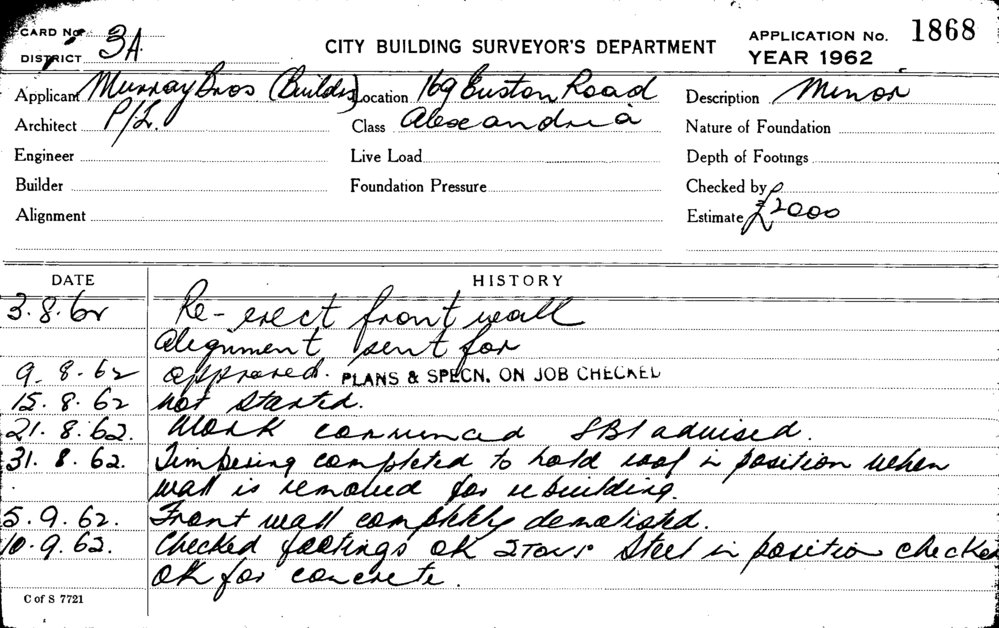 CARD No. 3A
DISTRICT
CITY BUILDING SURVEYOR'S DEPARTMENT
APPLICATION No. 1868
YEAR 1962
Applicant Murray Bros (Builders) Location 169 Euston Road Description Minor
Architect P/L. Class Alexandria Nature of Foundation
Engineer Live Load Depth of Footings
Builder Foundation Pressure Checked by
Alignment Estimate £2000
DATE HISTORY
3.8.62 Re-erect front wall
Alignment sent for
9.8.62 approved. PLANS & SPECN. ON JOB CHECKED
15.8.62 Not started.
21.8.62. Work commenced SBI advised.
31.8.62. Timbering completed to hold roof in position when
wall is removed for rebuilding.
5.9.62. Front wall completely demolished.
10.9.62. Checked footings OK Steel in position checked
OK for concrete.
C of S 7721